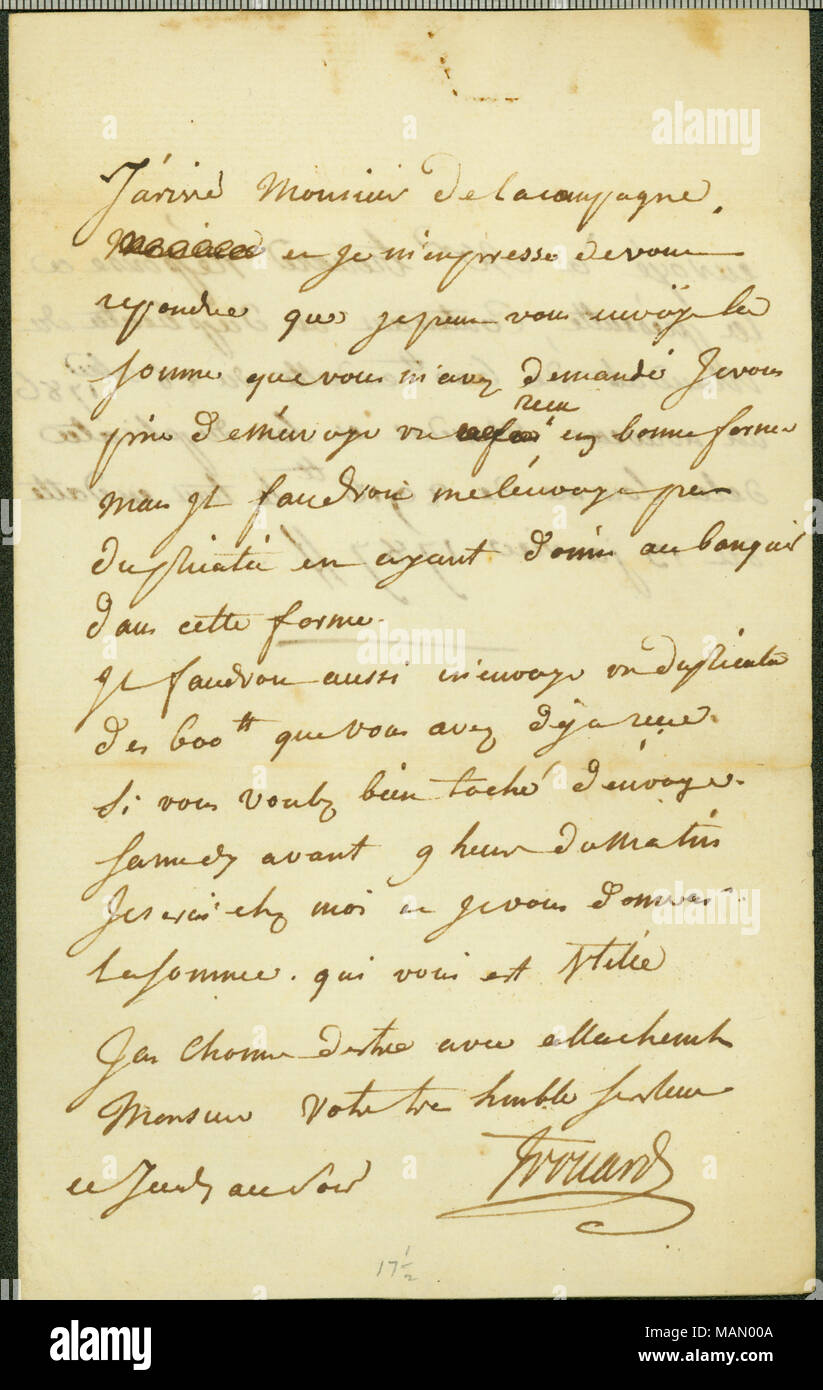 J'arive Monsieur de la campagne
et je m'enpresse de vous
repondre que je peux vous envoÿe la
somme que vous m'avez demandé Je vous
prie de m'envoye un recu en bonne forme
mais Jl faudroit me l'envoye par
duplicata en ayant donné au banquié
dans cette forme.
Jl faudrou aussi m'envoye un duplicata
des 600 ₶ que vous avez deja recue.
Si vous voulez bien taché d'envoye.
Samedy avant 9 heure du Matin
Je serai chez moi et je vous donnerai
La somme. qui vous est Utile
J'ai L'honneur d'estre avec attachement
Monsieur Votre tres humble serviteur
ce Jeudy au soir Trouard
17 1/2
alamy
Image ID: MAN00A
www.alamy.com